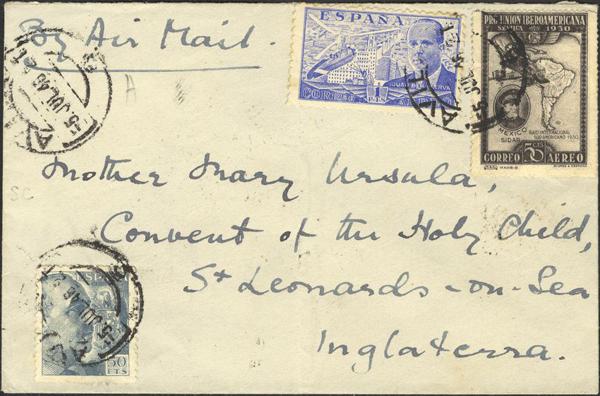 By Air Mail.
ESPAÑA
CORREO
1
PTS
PRO UNION IBEROAMERICANA
SEVILLA 1930
MEXICO
SIDAR
CORREO 50 CTS AEREO
A
SC
Mother Mary Ursula,
Convent of the Holy Child,
St Leonards-on-Sea
Inglaterra.
-5 JUL 46
50
PTS